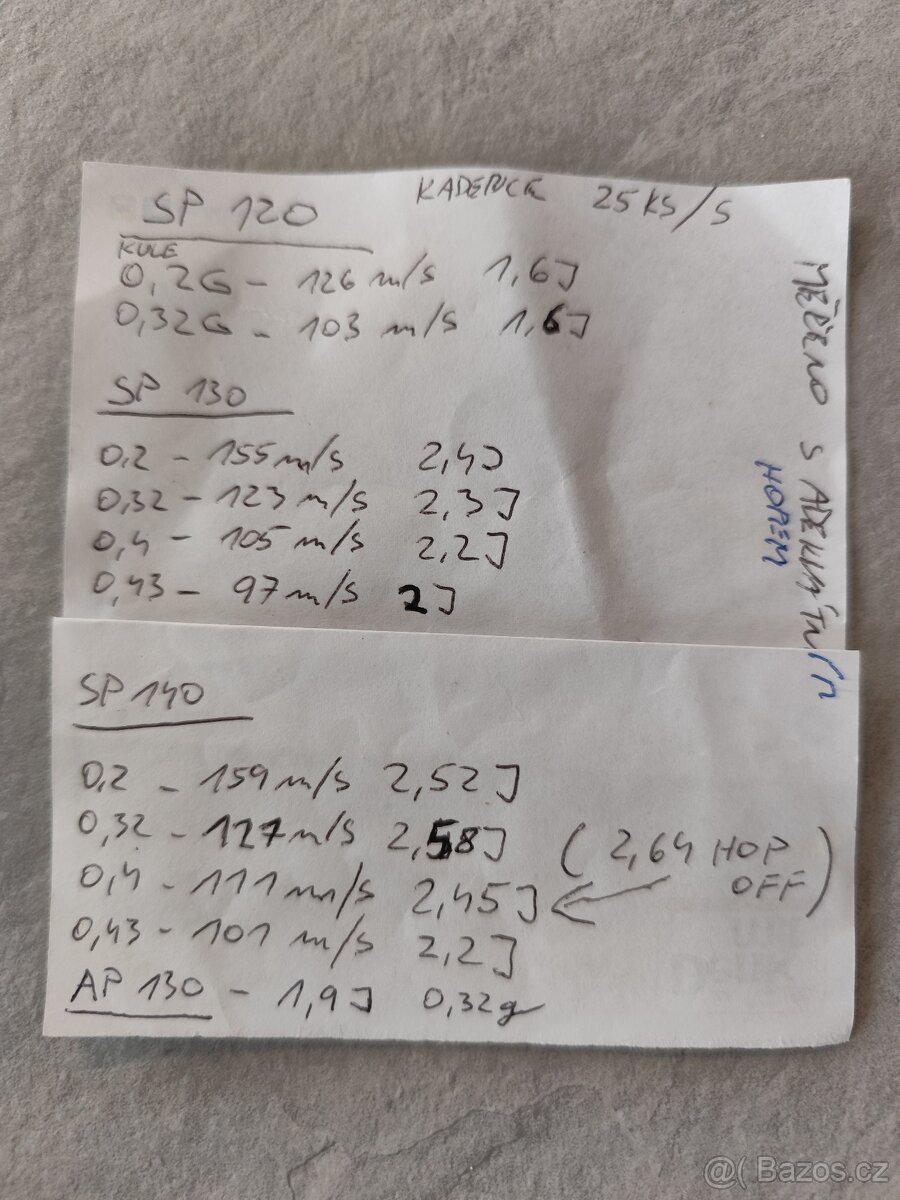 SP 120 KADENCE 25 KS/S
KULE
0,2G - 126 m/s 1,6J
0,32G - 103 m/s 1,6J
SP 130
0,2 - 155 m/s 2,4J
0,32 - 123 m/s 2,3J
0,4 - 105 m/s 2,2J
0,43 - 97 m/s 2J
MĚŘENO S ADEKVÁTNÍM
HOPEM
SP 140
0,2 - 159 m/s 2,52J
0,32 - 127 m/s 2,58J
(2,64 HOP
OFF)
0,4 - 111 m/s 2,45J
0,43 - 101 m/s 2,2J
AP 130 - 1,9J 0,32g
@( Bazos.cz